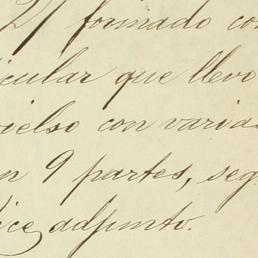 21 formado con
icular que llevo
ielso con varia
n 9 partes, seg
ice adjunto.